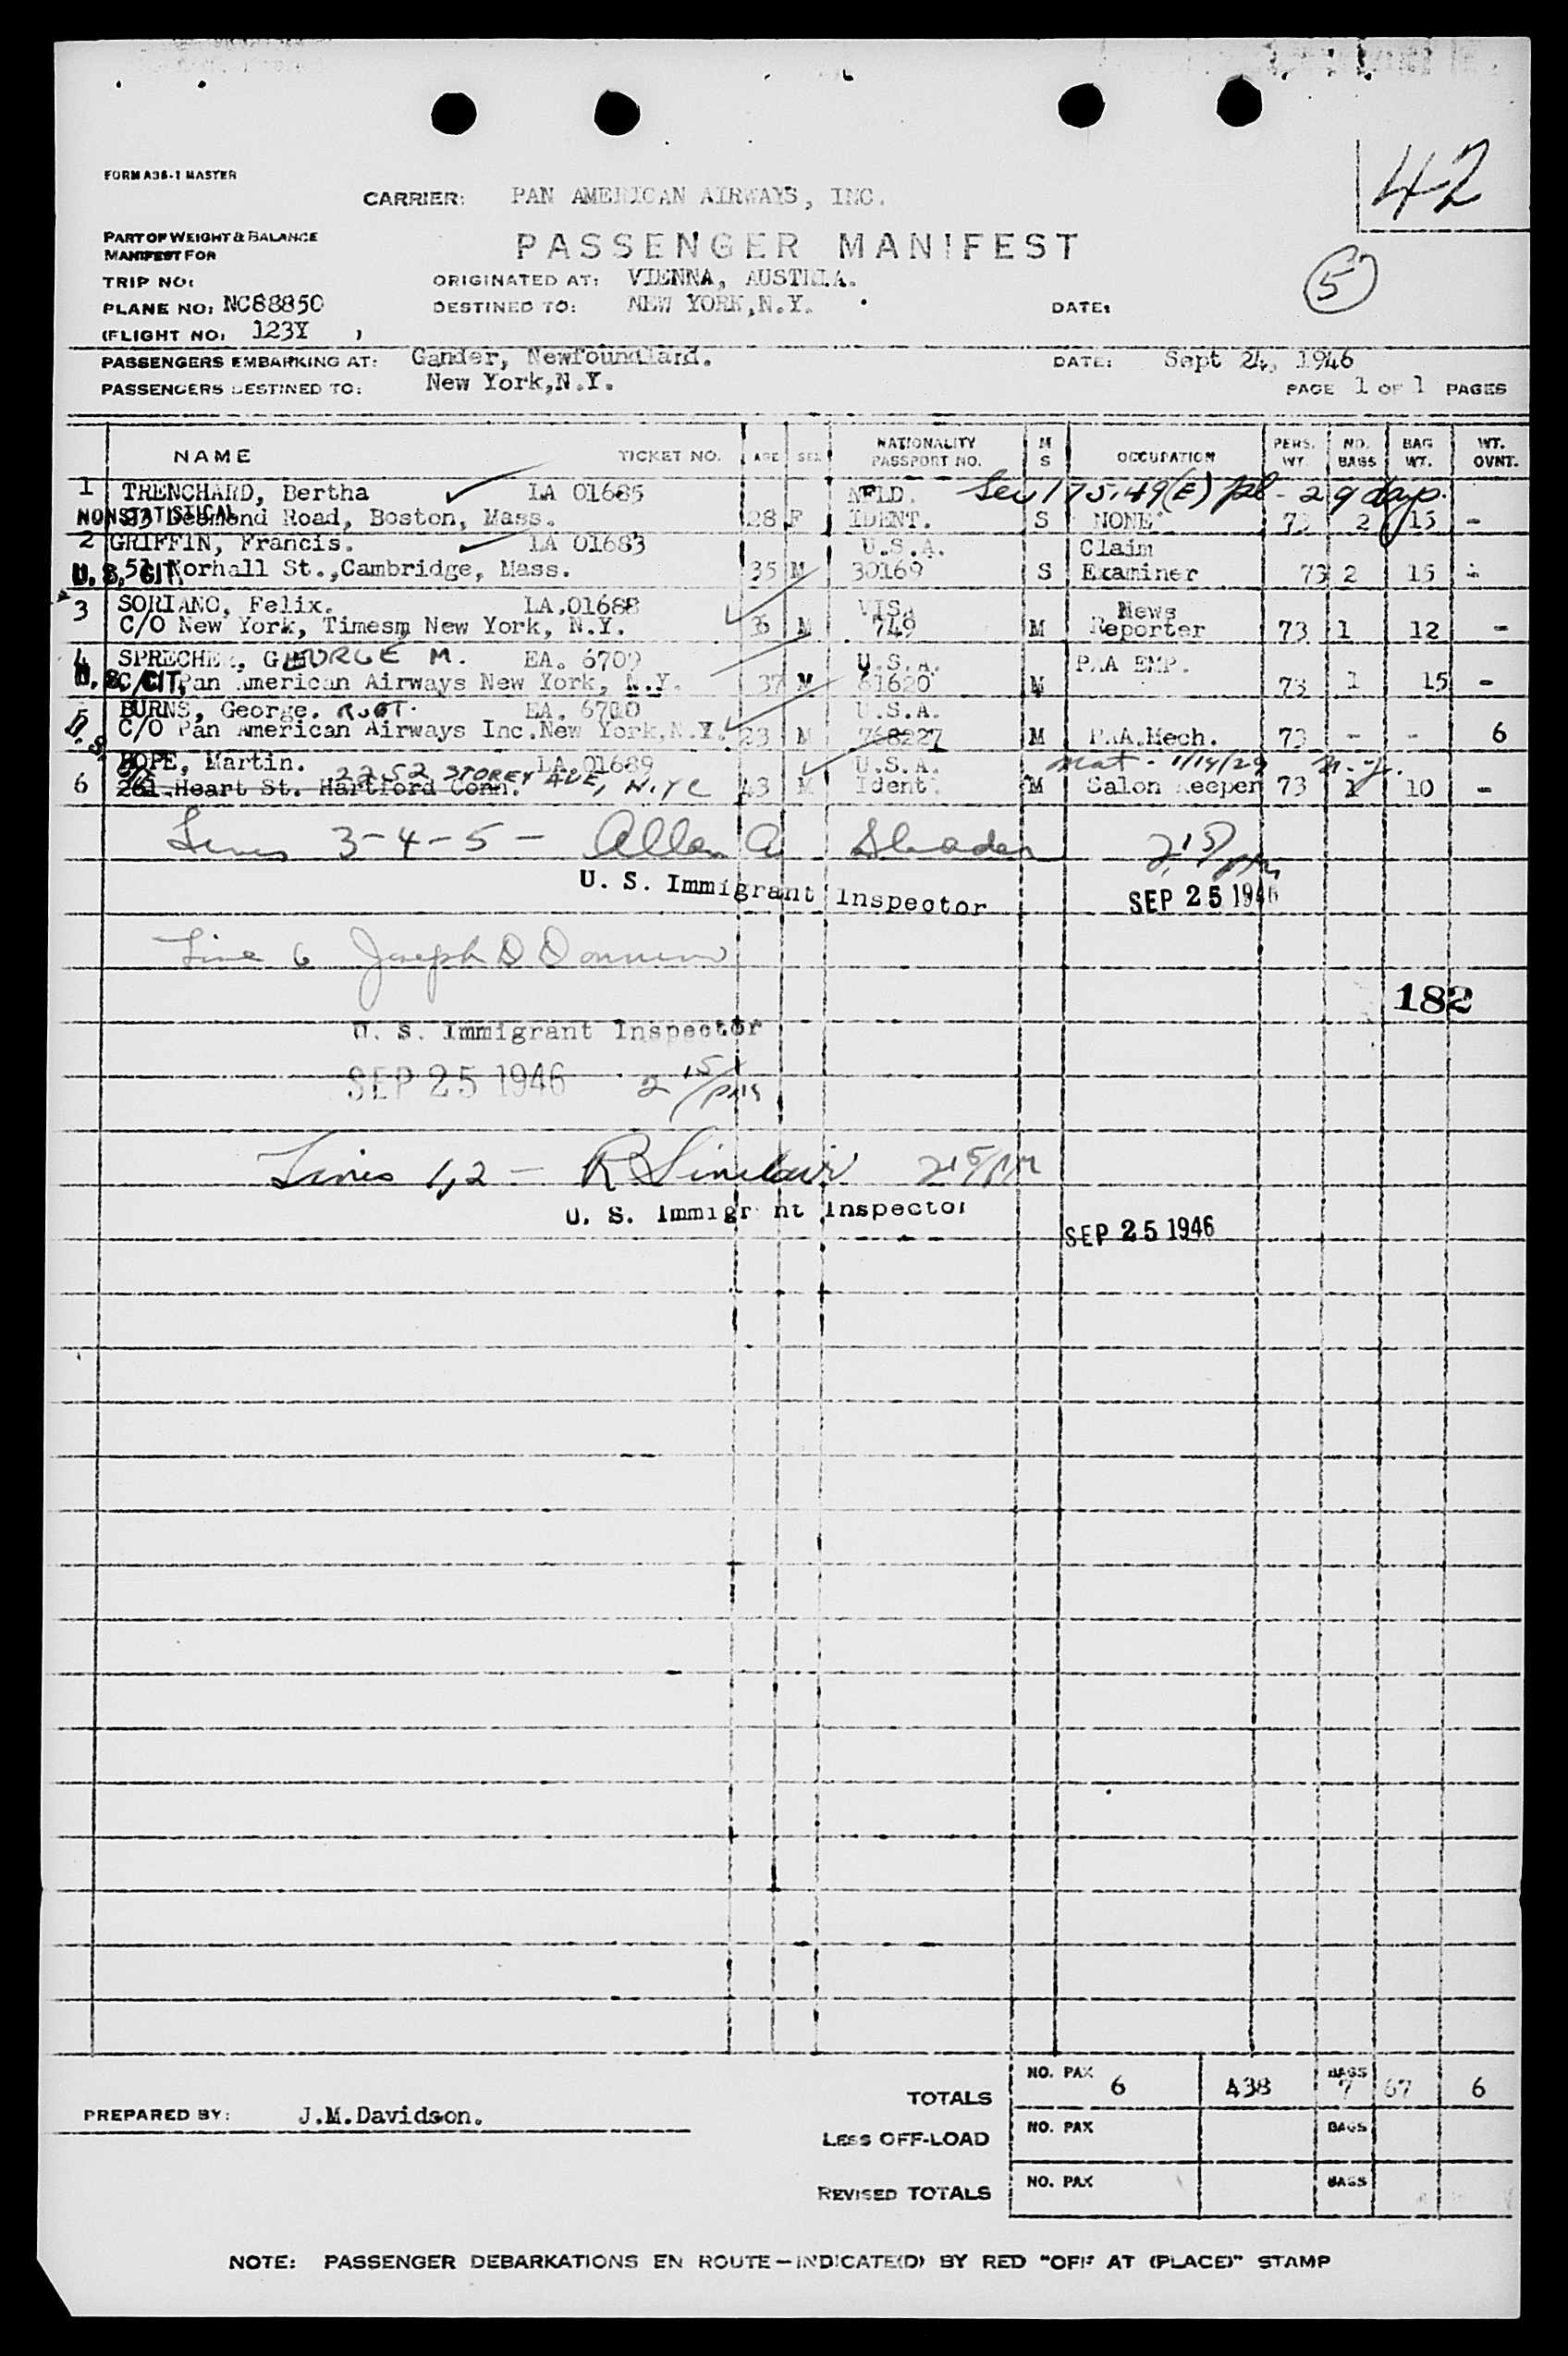 42
FORM A38-1 MASTER
CARRIER: PAN AMERICAN AIRWAYS, INC.
PART OF WEIGHT & BALANCE
MANIFEST FOR
PASSENGER MANIFEST
5
TRIP NO: ORIGINATED AT: VIENNA, AUSTRIA.
PLANE NO: NC88850 DESTINED TO: NEW YORK,N.Y. DATE:
(FLIGHT NO: 123Y )
PASSENGERS EMBARKING AT: Gander, Newfoundland. DATE: Sept 24, 1946
PASSENGERS DESTINED TO: New York,N.Y. PAGE 1 OF 1 PAGES
NAME TICKET NO. AGE SEX NATIONALITY PASSPORT NO. M S OCCUPATION PERS. WT. NO. BAGS BAG WT. WT. OVNT.
1 TRENCHARD, Bertha LA 01685 NFLD. Sec 175.49(E) - 29 days.
NONSTATISTICAL Desmond Road, Boston, Mass. 28 F IDENT. S NONE 73 2 15 -
2 GRIFFIN, Francis. LA 01683 U.S.A. Claim
U.S. CIT. 51 Norhall St.,Cambridge, Mass. 35 M 30169 S Examiner 73 2 15 -
3 SORIANO, Felix. LA.01688 VIS. News
C/O New York, Timesm New York, N.Y. M 749 M Reporter 73 1 12 -
4 SPRECHER, GEORGE M. EA. 6709 U.S.A. PAA EMP.
U.S. CIT. C/O Pan American Airways New York, N.Y. 37 M 61620 M 73 1 15 -
5 BURNS, George. ROBT. EA. 6710 U.S.A.
U.S. C/O Pan American Airways Inc.New York,N.Y. 23 M 768227 M PAA.Mech. 73 - - 6
HOPE, Martin. LA 01689 U.S.A. Nat - 1/14/29 N.Y.
6 261 Heart St. Hartford Conn. 2252 STOREY AVE, N.Y.C 43 M Ident. M Salon Keeper 73 1 10 -
Lines 3-4-5- Allen A. Shader 2 15 pm
U. S. Immigrant Inspector SEP 25 1946
Line 6 Joseph D
182
U. S. Immigrant Inspector
SEP 25 1946 2 15/pm
Lines 1,2 - R Sinclair 2 15/pm
U. S. Immigrant Inspector
SEP 25 1946
TOTALS NO. PAX 6 438 BAGS 7 67 6
PREPARED BY: J.M.Davidson.
LESS OFF-LOAD NO. PAX BAGS
REVISED TOTALS NO. PAX BAGS
NOTE: PASSENGER DEBARKATIONS EN ROUTE—INDICATE(D) BY RED "OFF AT (PLACE)" STAMP